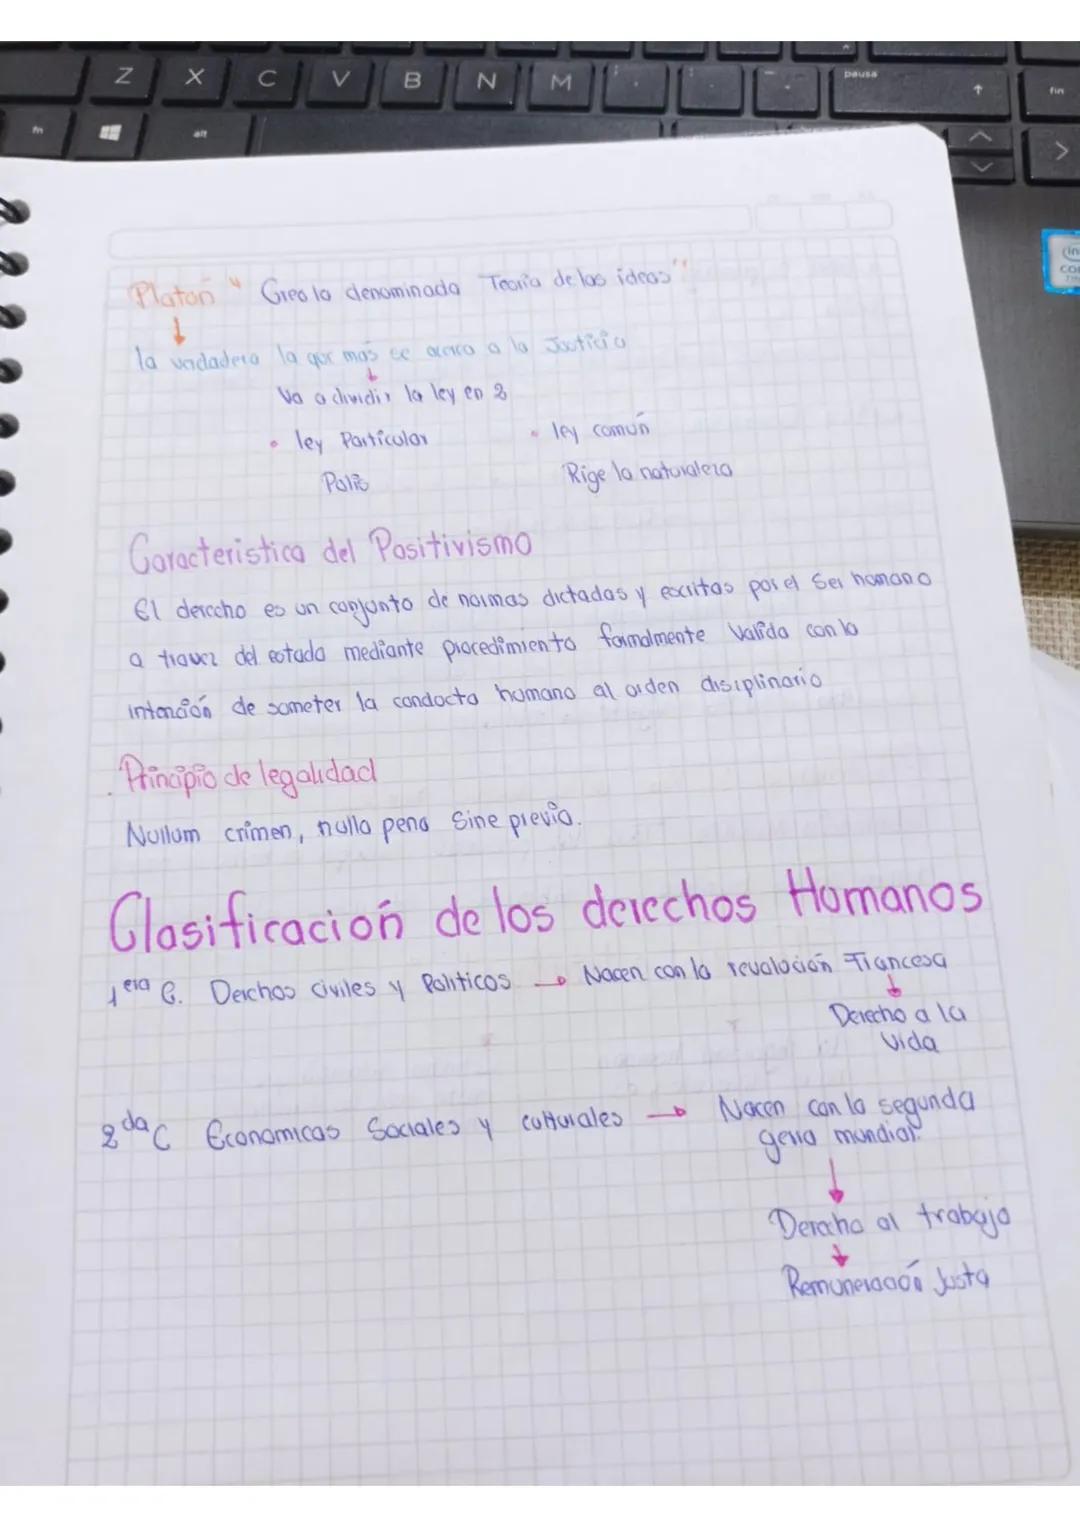 Z X C V B N M
pausa
fin
fn
alt
Platón " Creo la denominada Teoría de las ideas"
la verdadera la que mas se acerca a la Justicia
Va a dividir la ley en 2
• ley Particular • ley común
Polis Rige la naturaleza
Caracteristica del Positivismo
El derecho es un conjunto de normas dictadas y escritas por el Ser humano
a travez del estado mediante procedimiento formalmente Valida con la
intención de someter la conducta humana al orden disiplinario
. Principio de legalidad
Nullum crimen, nulla pena Sine previa.
Clasificación de los derechos Humanos
1era G. Derchos civiles y Politicos → Nacen con la revolución Francesa
Derecho a la
Vida
2da C Economicas Sociales y culturales → Nacen con la segunda
gerra mundial.
Derecho al trabajo
Remuneración Justa